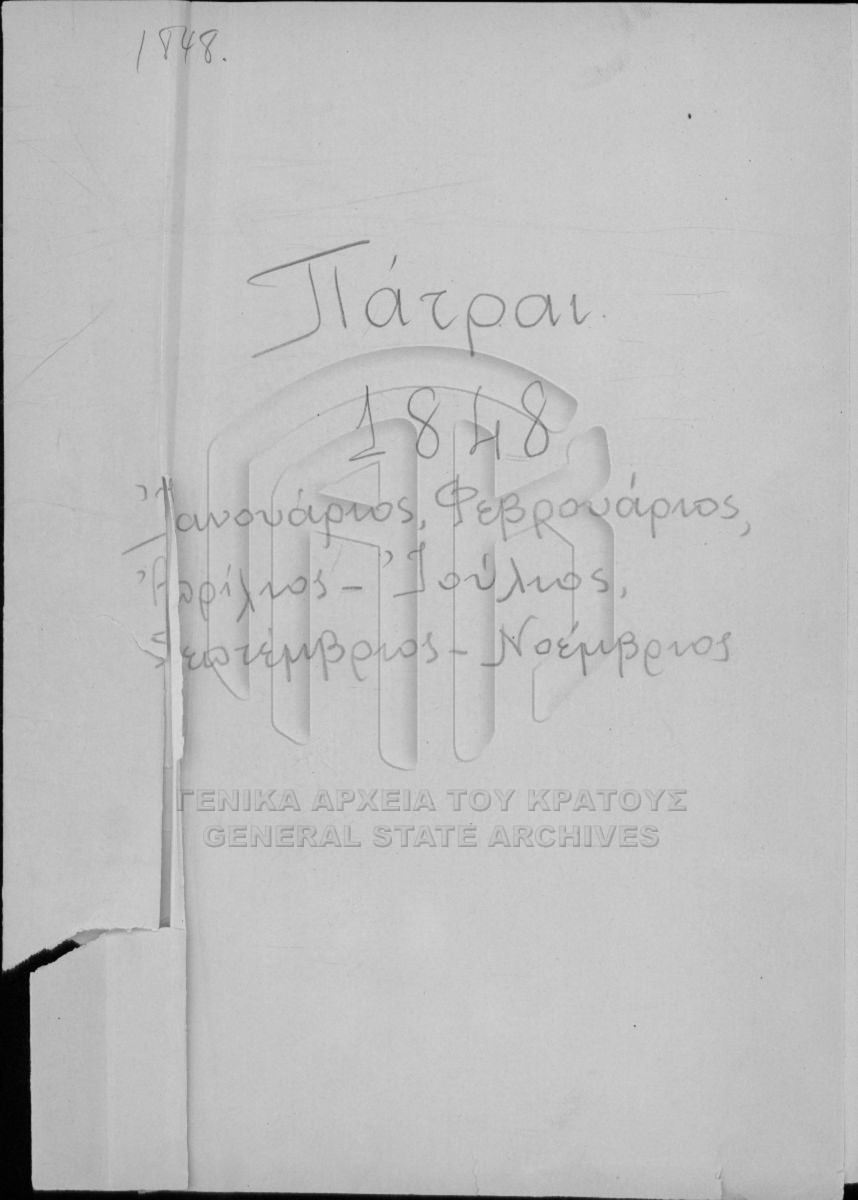 1848.
Πάτραι
1848
Ἰανουάριος, Φεβρουάριος,
Ἀπρίλιος - Ἰούλιος,
Σεπτέμβριος - Νοέμβριος
ΓΕΝΙΚΑ ΑΡΧΕΙΑ ΤΟΥ ΚΡΑΤΟΥΣ
GENERAL STATE ARCHIVES